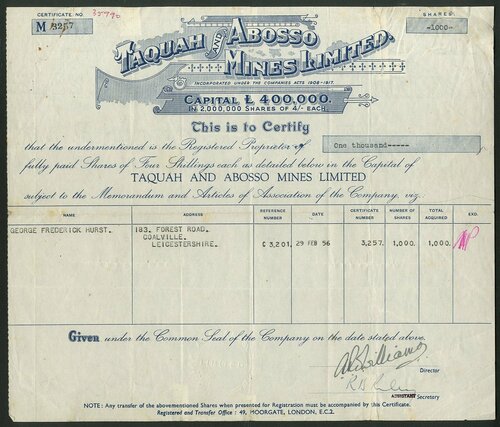 CERTIFICATE NO.
35790
M 3257
SHARES
-1000-
TAQUAH AND ABOSSO
MINES LIMITED.
INCORPORATED UNDER THE COMPANIES ACTS 1908-1917.
CAPITAL £ 400,000.
IN 2,000,000 SHARES OF 4/- EACH.
This is to Certify
that the undermentioned is the Registered Proprietor of One thousand-----
fully paid Shares of Four Shillings each as detailed below in the Capital of
TAQUAH AND ABOSSO MINES LIMITED
subject to the Memorandum and Articles of Association of the Company, viz.
NAME ADDRESS REFERENCE NUMBER DATE CERTIFICATE NUMBER NUMBER OF SHARES TOTAL ACQUIRED EXD.
GEORGE FREDERICK HURST. 183, FOREST ROAD,
COALVILLE,
LEICESTERSHIRE. C 3,201. 29 FEB 56 3,257. 1,000. 1,000.
Given under the Common Seal of the Company on the date stated above.
Director
ASSISTANT Secretary
NOTE: Any transfer of the abovementioned Shares when presented for Registration must be accompanied by this Certificate.
Registered and Transfer Office: 49, MOORGATE, LONDON, E.C.2.